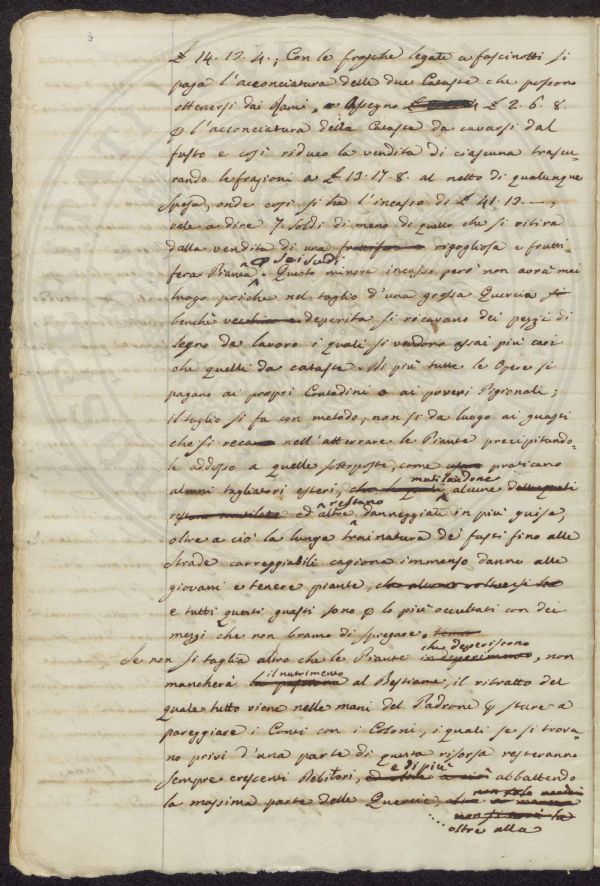 £ 14. 13. 4.; Con le frasche legate a fascinotti si
paga l'acconciatura delle due Cataste che possono
ottenersi dai Rami, e Assegno £ 2. 6. 8.
p l'acconciatura della Catasta da cavarsi dal
fusto e così riduco la vendita di ciascuna trascu-
rando le frazioni a £ 13. 17. 8. al netto di qualunque
Spesa, onde così si ha l'incasso di £ 41. 13. —,
vale a dire 7. Soldi di meno di quello che si ritira
dalla vendita di una fruttifera e rigogliosa e frutti-
p sei soldi
fera Pianta. Questo minore incasso però non avrà mai
luogo poichè nel taglio d'una grossa Quercia si
benchè vecchia e deperita si ricavano dei pezzi di
Legno da lavoro i quali si vendono assai più cari
che quelli da catasta. Di più tutte le Opere si
pagano ai propri Contadini o ai poveri Pigionali;
il taglio si fa con metodo; non si da luogo ai guasti
che si recano nell'atterrare le Piante precipitando-
le addosso a quelle sottoposte, come praticano
mutilandone
alcuni tagliatori esteri, alcune
restano
restano mutilate ed altre danneggiate in più guise,
oltre a ciò la lunga trainatura dei fusti fino alle
Strade carreggiabili cagiona immenso danno alle
giovani e tenere piante,
e tutti questi guasti sono p lo più occultati con dei
mezzi che non bramo di spiegare.
che deperiscono
Se non si taglia altro che le Piante in deperimento, non
il nutrimento
mancherà la pastura al Bestiame, il ritratto del
quale tutto viene nelle mani del Padrone p stare a
pareggiare i Conti con i Coloni, i quali se si trova-
no privi d'una parte di questa risorsa resteranno
e di più
sempre crescenti Debitori, abbattendo
la massima parte delle Quercie,
non si avrà la
oltre alla